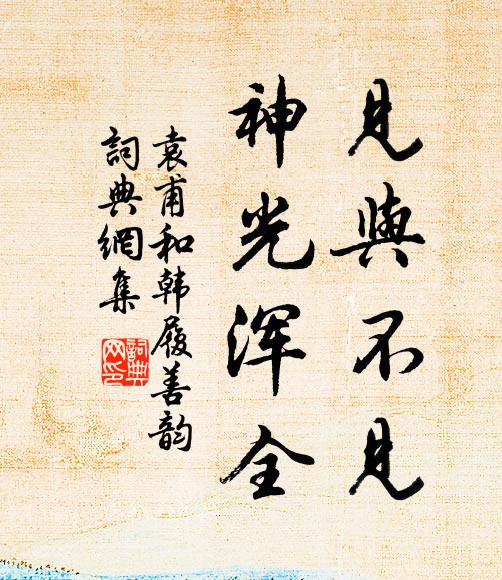 見與不見
神光浑全
袁甫和韩履善韵
詞典網集
詞典
网印